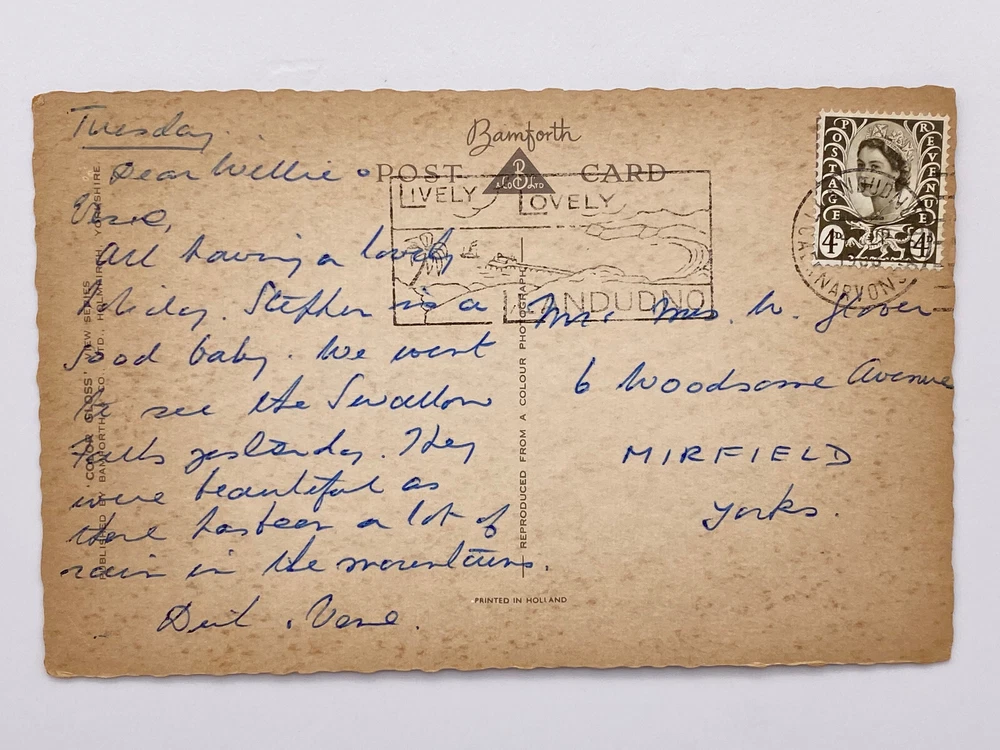 Tuesday
Dear Willie &
Vere,
All having a lovely
holiday. Stephen is a
good baby. We went
to see the Swallow
Falls yesterday. They
were beautiful as
there has been a lot of
rain in the mountains.
Vere.
Bamforth
POST CARD
B
& Co LTD
LIVELY LOVELY
LLANDUDNO
POSTAGE REVENUE
4D 4D
CAERNARVONS
Mr. Mrs. W. Glover
6 Woodsome Avenue
MIRFIELD
Yorks.
'COLOR GLOSS' VIEW SERIES
PUBLISHED BY BAMFORTH & CO. LTD., HOLMFIRTH, YORKSHIRE.
REPRODUCED FROM A COLOUR PHOTOGRAPH
PRINTED IN HOLLAND